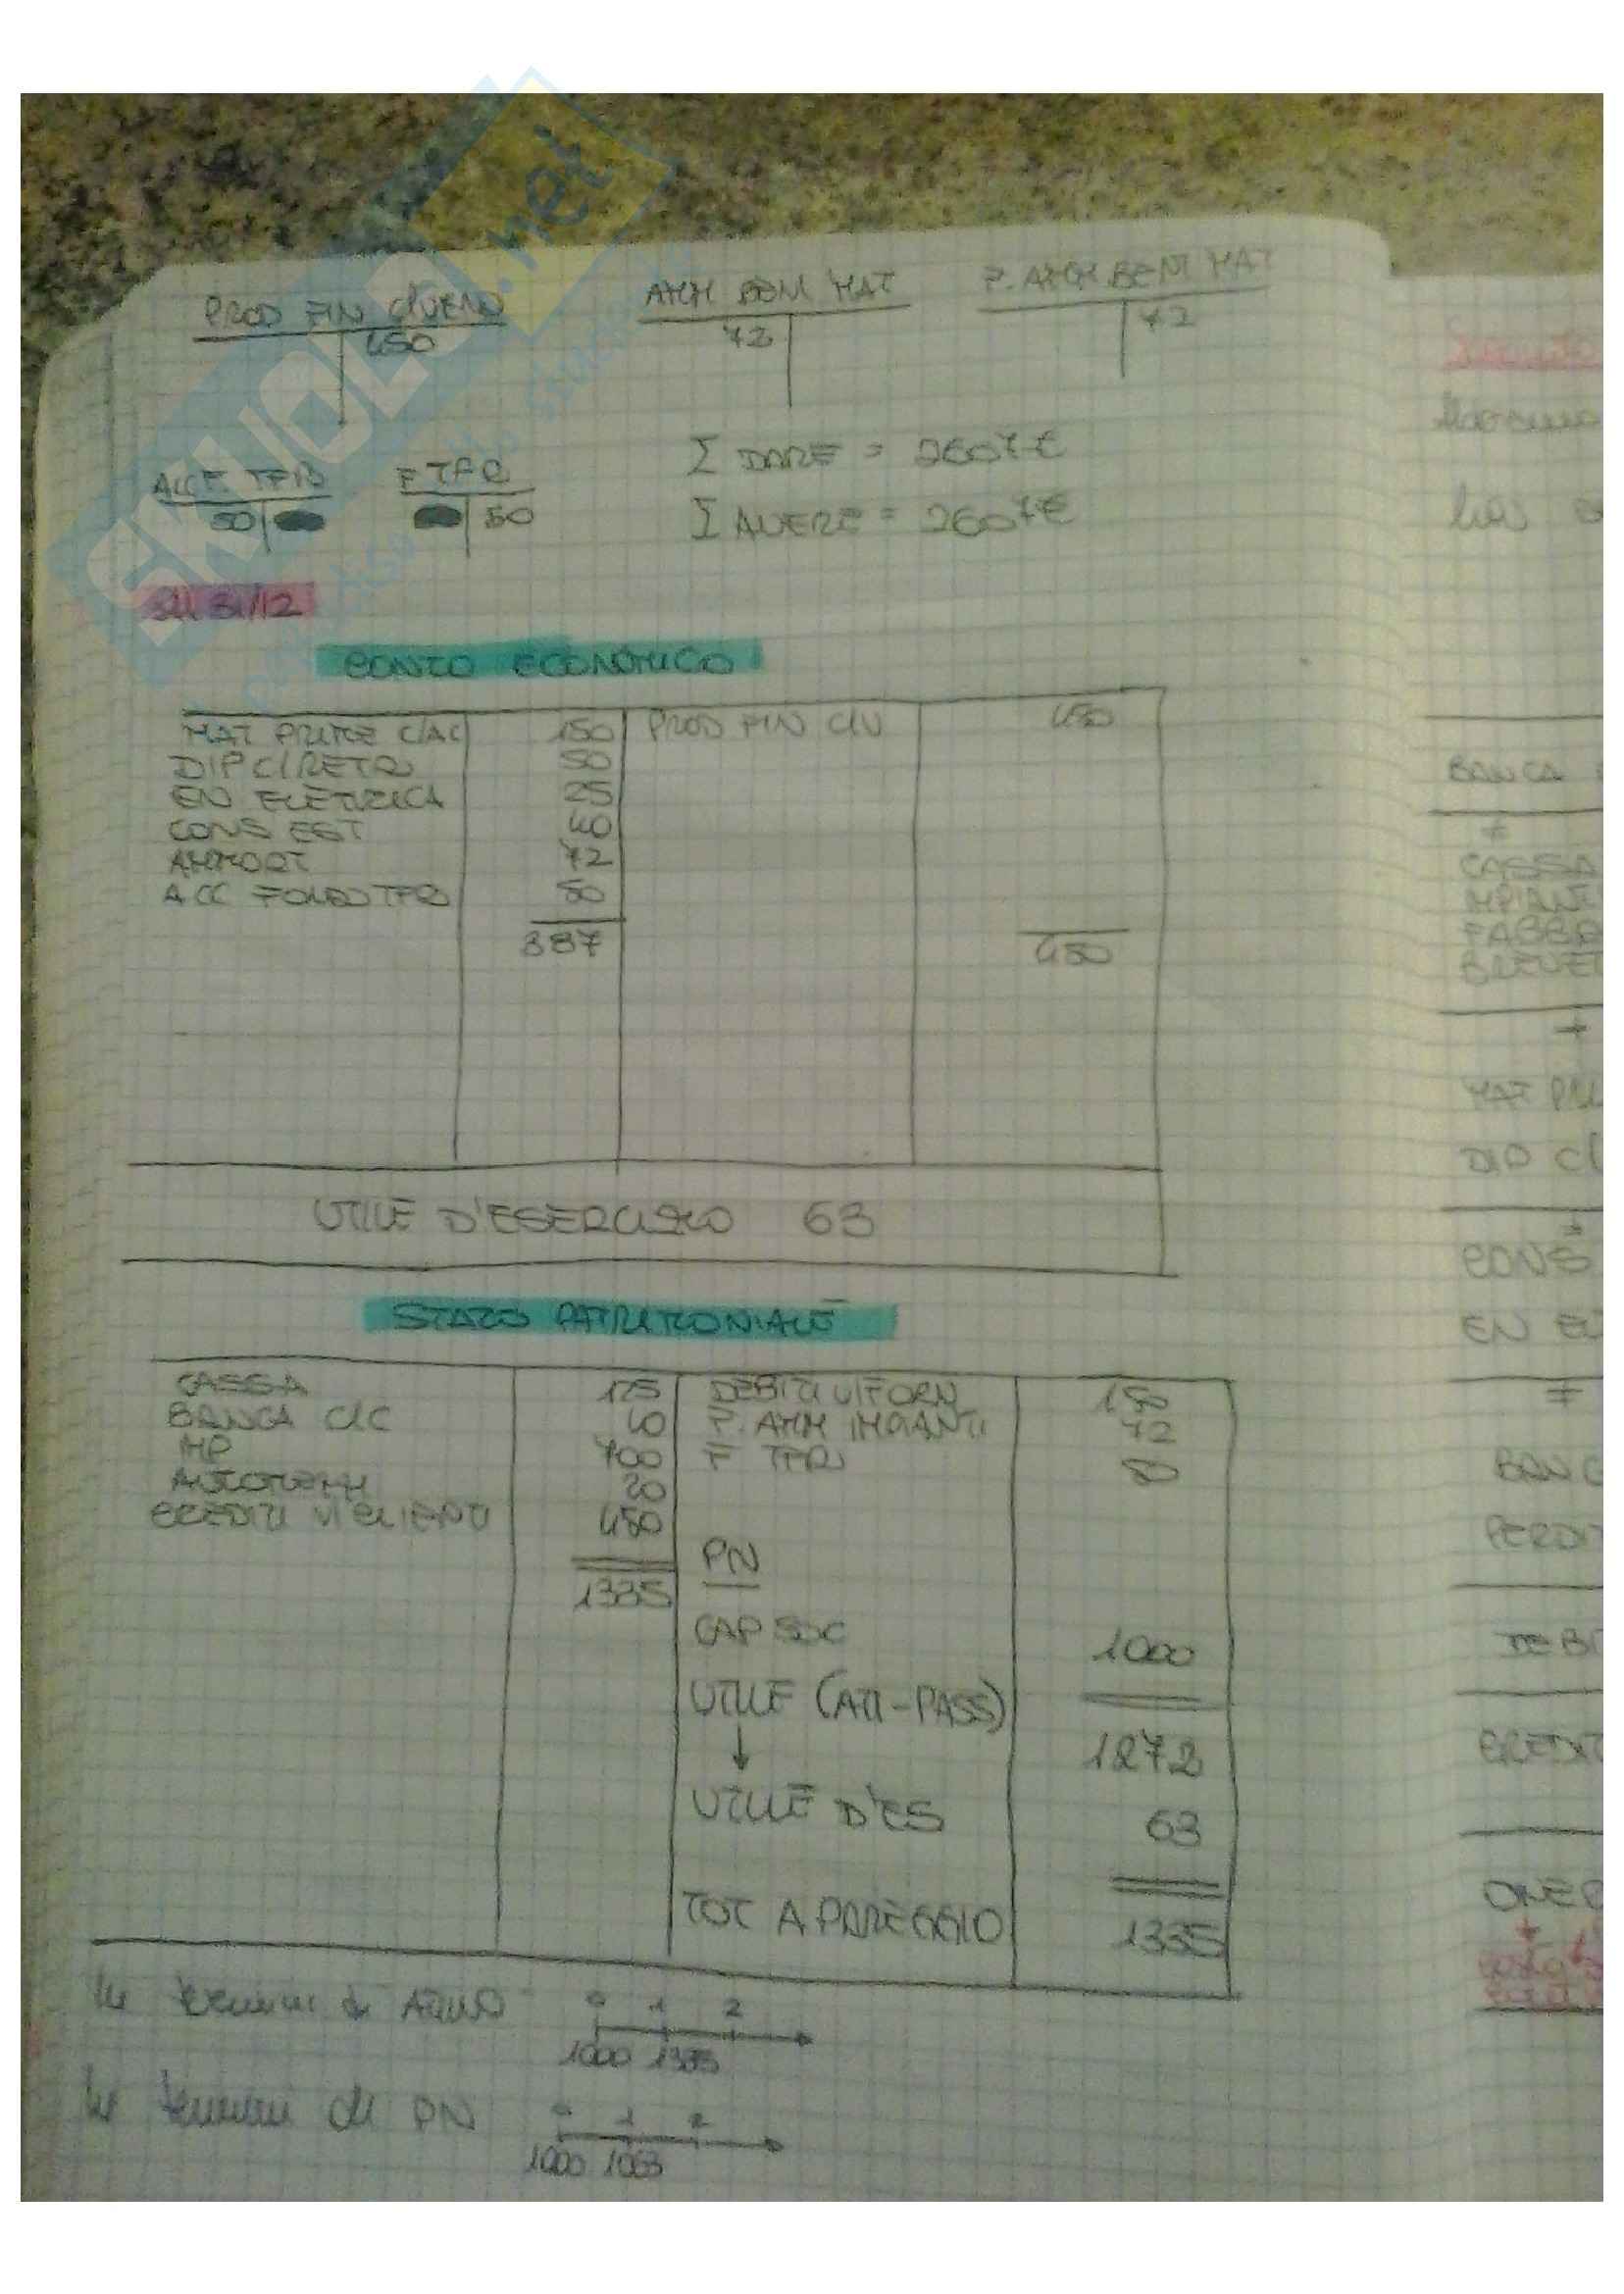 PROD FIN C/VEND
AMM BENI MAT
F. AMM BENI MAT
450
72
72
ACC. TFR
F TFR
50
50
Σ DARE = 2607 €
Σ AVERE = 2607 €
SKUOLA.net
AL 31/12
CONTO ECONOMICO
MAT PRIME C/AC 150 PROD FIN C/V 450
DIP C/RETR 50
EN ELETTRICA 25
CONS EST 40
AMMORT 72
ACC FONDO TFR 50
387 450
UTILE D'ESERCIZIO 63
STATO PATRIMONIALE
CASSA 125 DEBITI V/FORN 150
BANCA C/C 40 F. AMM IMPIANTI 72
MP 700 F TFR 50
AUTOMEZZI 20
CREDITI V/CLIENTI 450
PN
1335
CAP SOC 1000
UTILE (ATT-PASS)
1272
↓
UTILE D'ES 63
TOT A PAREGGIO 1335
In termini di ATTIVO 0 1 2
1000 1335
In termini di PN 0 1 2
1000 1063
BANCA
CASSA
IMPIANT
FABBR
BREVET
+
MAT PRI
DIP C/
CONS
EN EL
BANC
PERDIT
DEBI
CREDIT
ONER